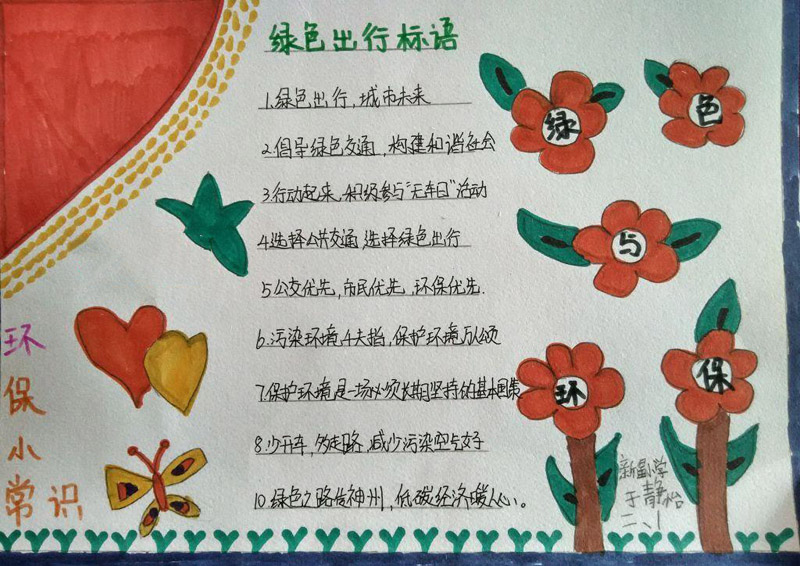 绿色出行标语
1.绿色出行,城市未来
2.倡导绿色交通,构建和谐社会
3.行动起来,积极参与“无车日”活动
4.选择公共交通 选择绿色出行
5.公交优先,市民优先,环保优先.
6.污染环境千夫指,保护环境万人颂
7.保护环境是一场必须长期坚持的基本国策
8.少开车,多走路,减少污染空气好
10.绿色之路传神州,低碳经济暖人心。
绿 色
与
环 保
环
保
小
常识
新疆小学
于静怡
二、1